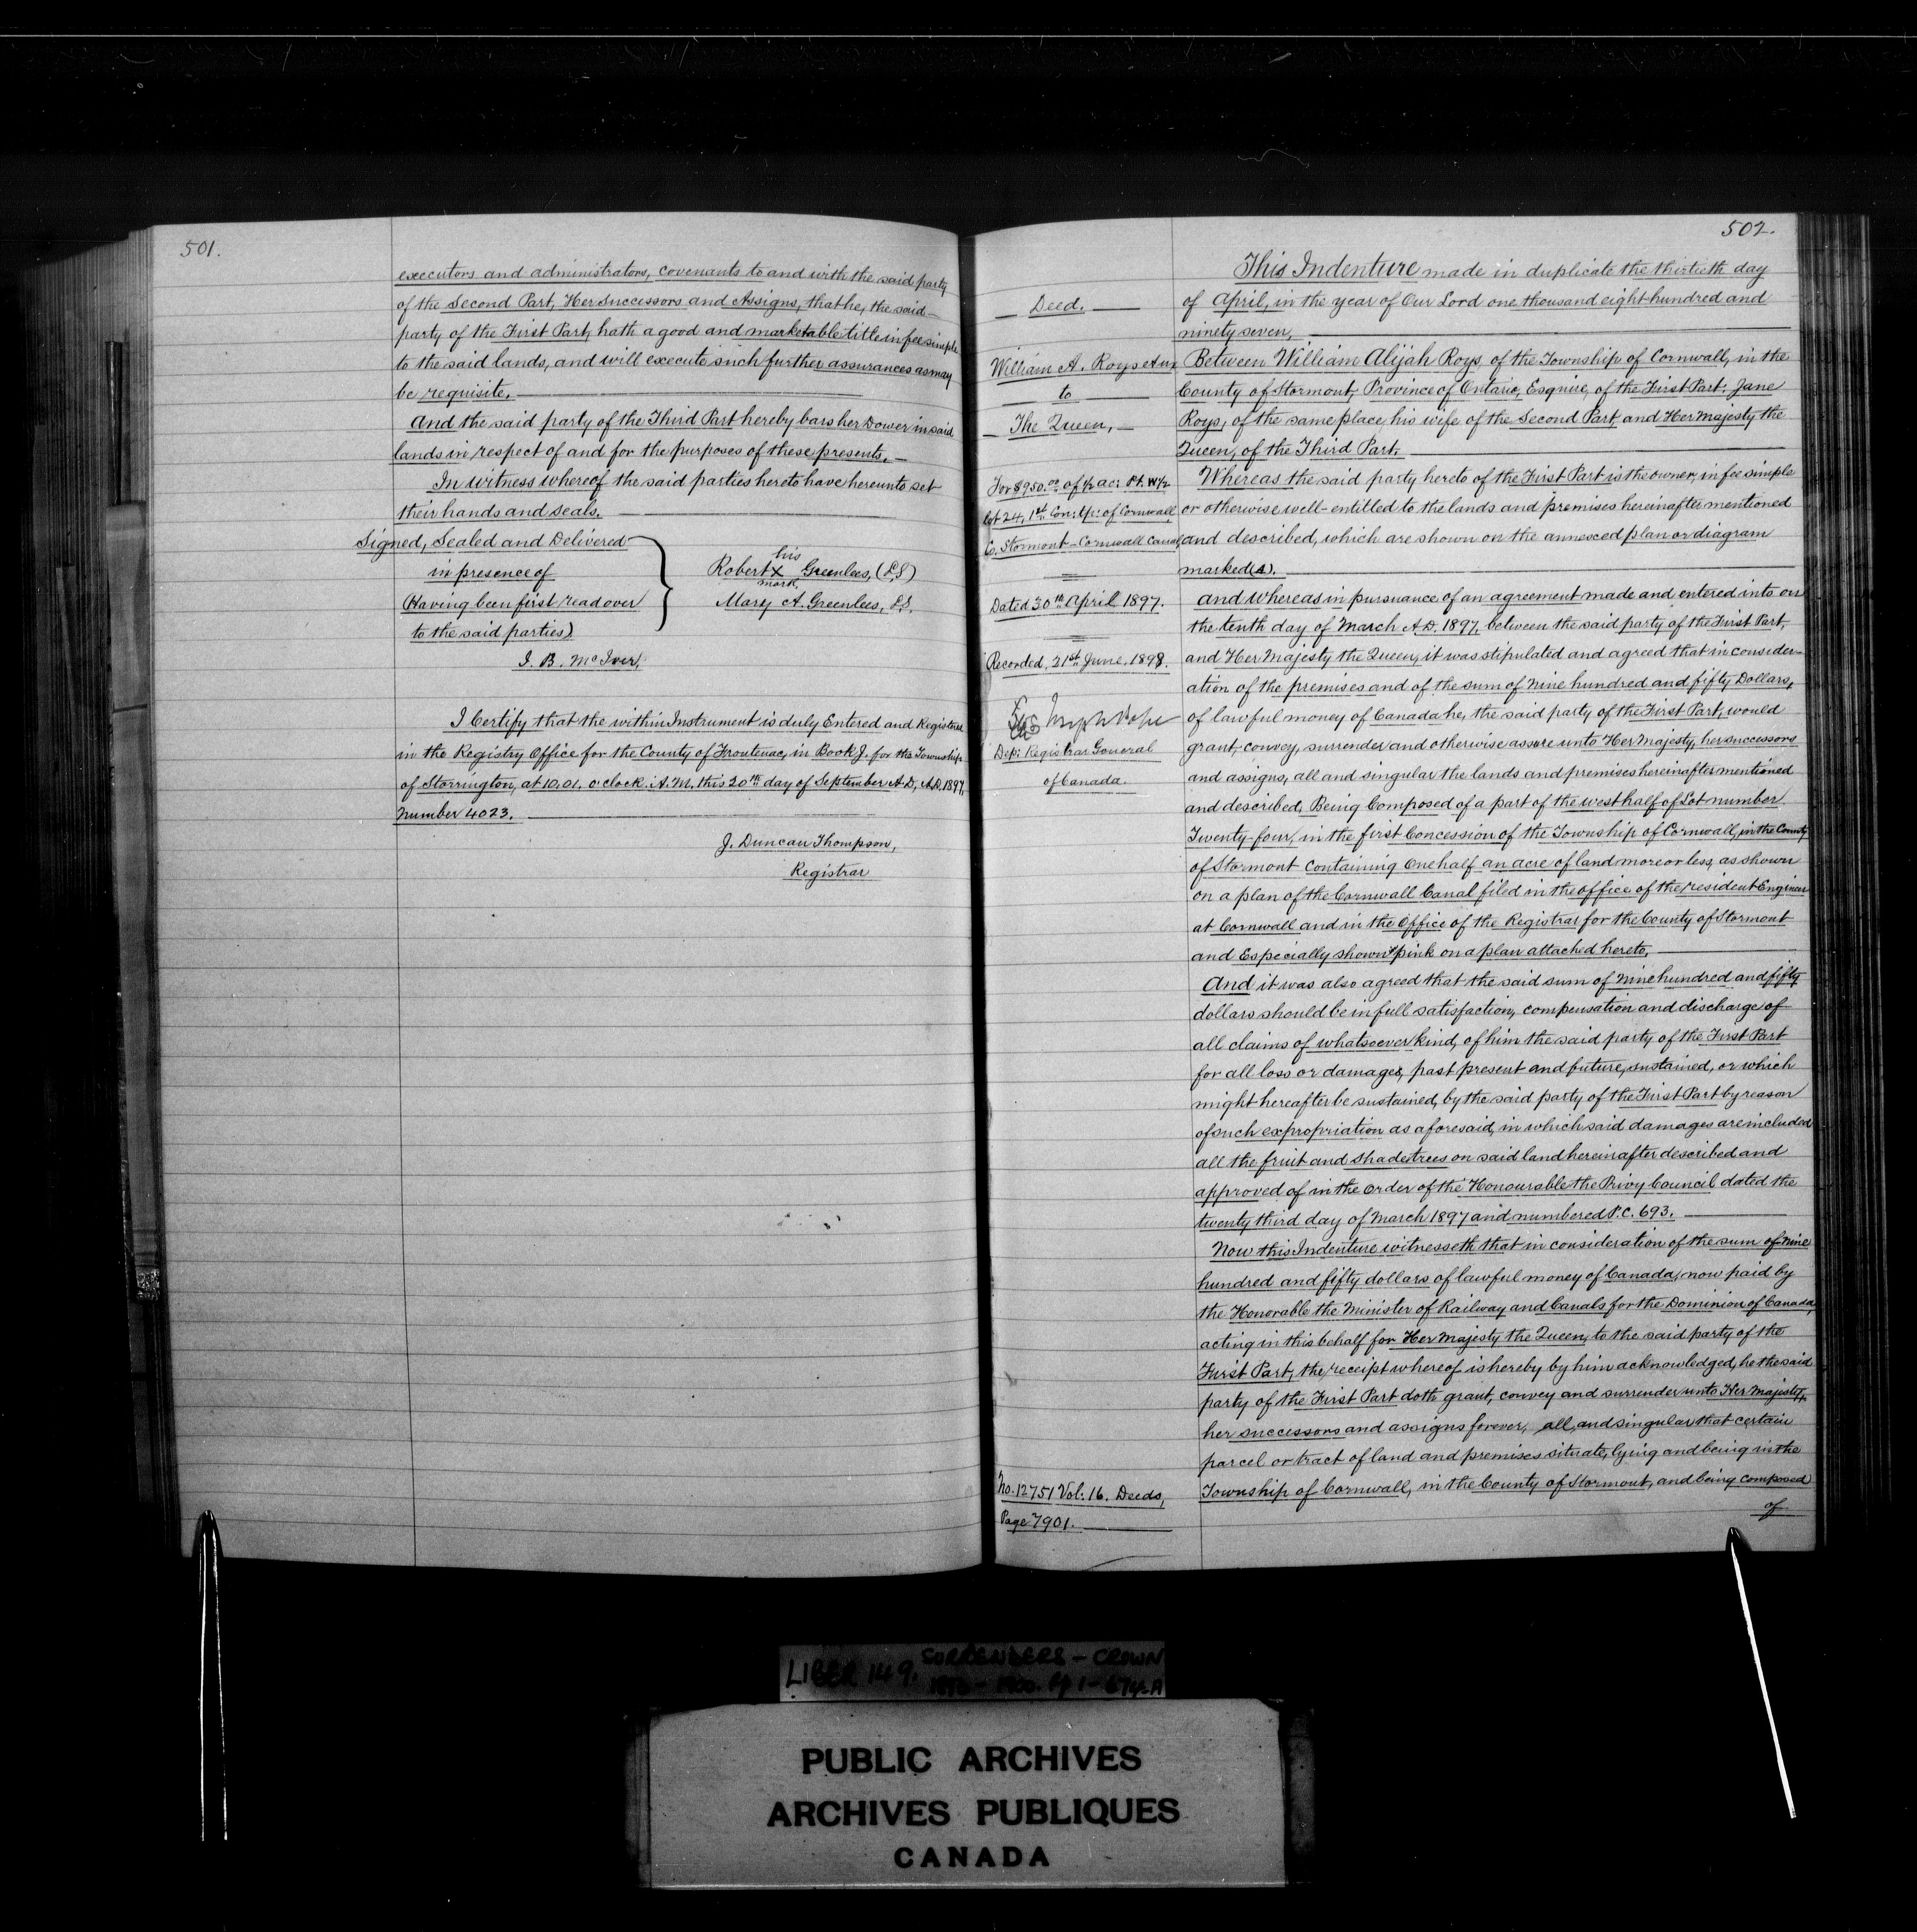 501.
executors and administrators, covenants to and with the said party
of the Second Part, Her Successors and Assigns, that he, the said
party of the First Part, hath a good and marketable title in fee simple
to the said lands, and will execute such further assurances as may
be requisite.
And the said party of the Third Part hereby bars her Dower in said
lands in respect of and for the purposes of these presents.
In witness whereof the said parties hereto have hereunto set
their hands and seals.
Signed, Sealed and Delivered
in presence of
(Having been first read over
to the said parties)
I. B. McIver,
his
Robert X Greenlees, (L.S)
mark
Mary A. Greenlees, L.S.
I Certify that the within Instrument is duly Entered and Registered
in the Registry Office for the County of Frontenac, in Book J. for the Township
of Storrington, at 10.01. o'clock. A.M. this 20th day of September A.D, A.D. 1897,
Number 4023.
J. Duncan Thompson,
Registrar
502.
Deed.
William A. Roys et ux
to
The Queen,
For $950.00 of 1/2 ac: Pt. W 1/2
Lot 24, 1st Con: Tp: of Cornwall,
C. Stormont - Cornwall Canal
Dated 30th April 1897.
Recorded, 21st June, 1898.
Joseph Pope
Dep: Registrar General
of Canada.
No. 12751 Vol: 16. Deeds,
Page 7901.
This Indenture made in duplicate the thirtieth day
of April, in the year of Our Lord one thousand eight hundred and
ninety seven,
Between William Alijah Roys, of the Township of Cornwall, in the
County of Stormont, Province of Ontario, Esquire, of the First Part: Jane
Roys, of the same place, his wife of the Second Part, and Her Majesty the
Queen, of the Third Part.
Whereas the said party hereto of the First Part is the owner, in fee simple
or otherwise well-entitled to the lands and premises hereinafter mentioned
and described, which are shown on the annexed plan or diagram
marked (A).
And whereas in pursuance of an agreement made and entered into on
the tenth day of March A.D. 1897, between the said party of the First Part,
and Her Majesty the Queen, it was stipulated and agreed that in consider-
ation of the premises and of the sum of Nine hundred and fifty Dollars,
of lawful money of Canada he, the said party of the First Part, would
grant, convey, surrender and otherwise assure unto Her Majesty, her successors
and assigns, all and singular the lands and premises hereinafter mentioned
and described, Being Composed of a part of the west half of Lot number
Twenty-four, in the first Concession of the Township of Cornwall, in the County
of Stormont containing One half an acre of land more or less, as shown
on a plan of the Cornwall Canal filed in the office of the resident Engineer
at Cornwall and in the Office of the Registrar for the County of Stormont
and Especially shown pink on a plan attached hereto,
And it was also agreed that the said sum of Nine hundred and fifty
dollars should be in full satisfaction, compensation and discharge of
all claims of whatsoever kind, of him the said party of the First Part
for all loss or damages, past present and future, sustained, or which
might hereafter be sustained, by the said party of the First Part by reason
of such expropriation as aforesaid, in which said damages are included
all the fruit and shade trees on said land hereinafter described and
approved of in the order of the Honourable the Privy Council dated the
twenty third day of March 1897 and numbered P.C. 693.
Now this Indenture witnesseth that in consideration of the sum of Nine
hundred and fifty dollars of lawful money of Canada, now paid by
the Honorable the Minister of Railway and Canals for the Dominion of Canada,
acting in this behalf for Her Majesty the Queen, to the said party of the
First Part, the receipt whereof is hereby by him acknowledged, he the said
party of the First Part doth grant, convey and surrender unto Her Majesty,
her successors and assigns forever, all, and singular that certain
parcel or tract of land and premises situate, lying and being in the
Township of Cornwall, in the County of Stormont, and being composed
of
LIBER 149. SURRENDERS - CROWN
PUBLIC ARCHIVES
ARCHIVES PUBLIQUES
CANADA